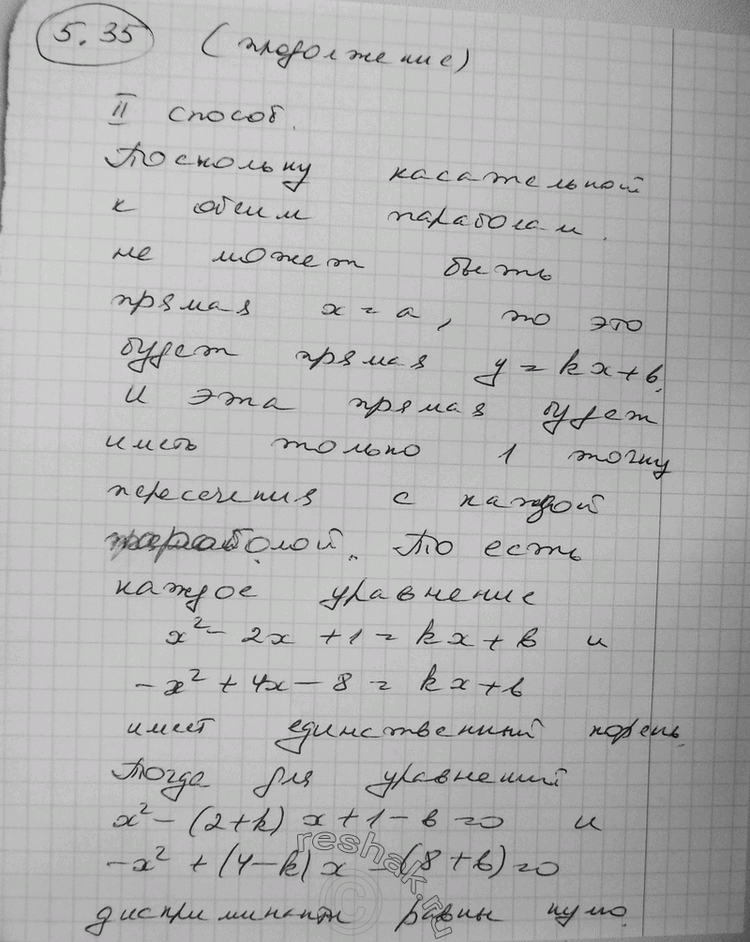 5.35 (продолжение)
II способ.
Поскольку касательной
к обеим параболам
не может быть
прямая x = a, то это
будет прямая y = kx + b.
И эта прямая будет
иметь только 1 точку
пересечения с каждой
параболой. То есть
каждое уравнение
x² - 2x + 1 = kx + b и
-x² + 4x - 8 = kx + b
имеет единственный корень.
Тогда для уравнений
x² - (2+k) x + 1 - b = 0 и
-x² + (4-k) x - (8+b) = 0
дискриминант равны нулю.
reshak.ru